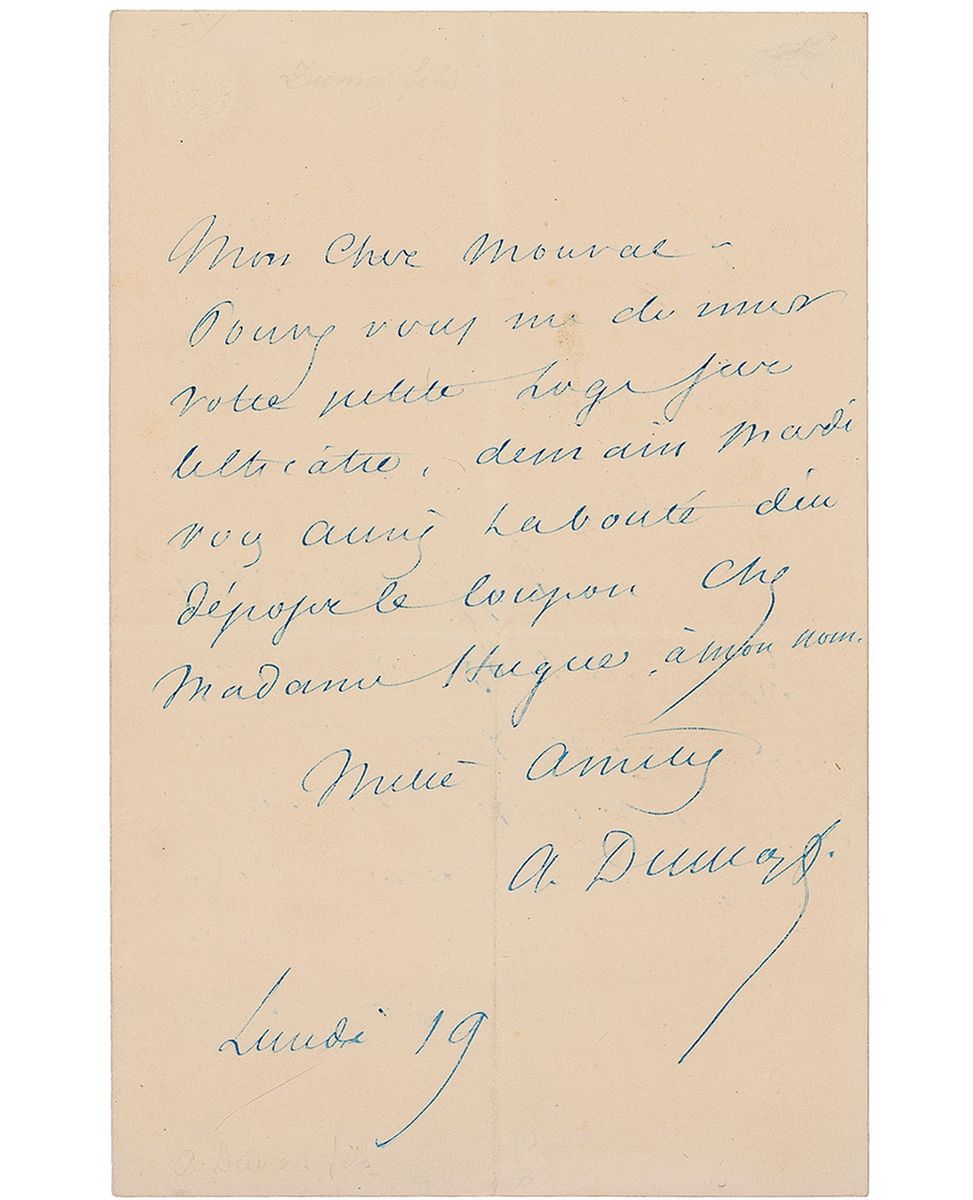 Dumas fils
Mon Cher Mouval -
Pouvez vous me donner
votre petite Loge sur
le théâtre, demain mardi
vous auriez La bonté d'en
déposer le coupon chez
Madame Hugue, à mon nom.
Mille Amitiés
A. Dumas f.
Lundi 19
A Dumas fils